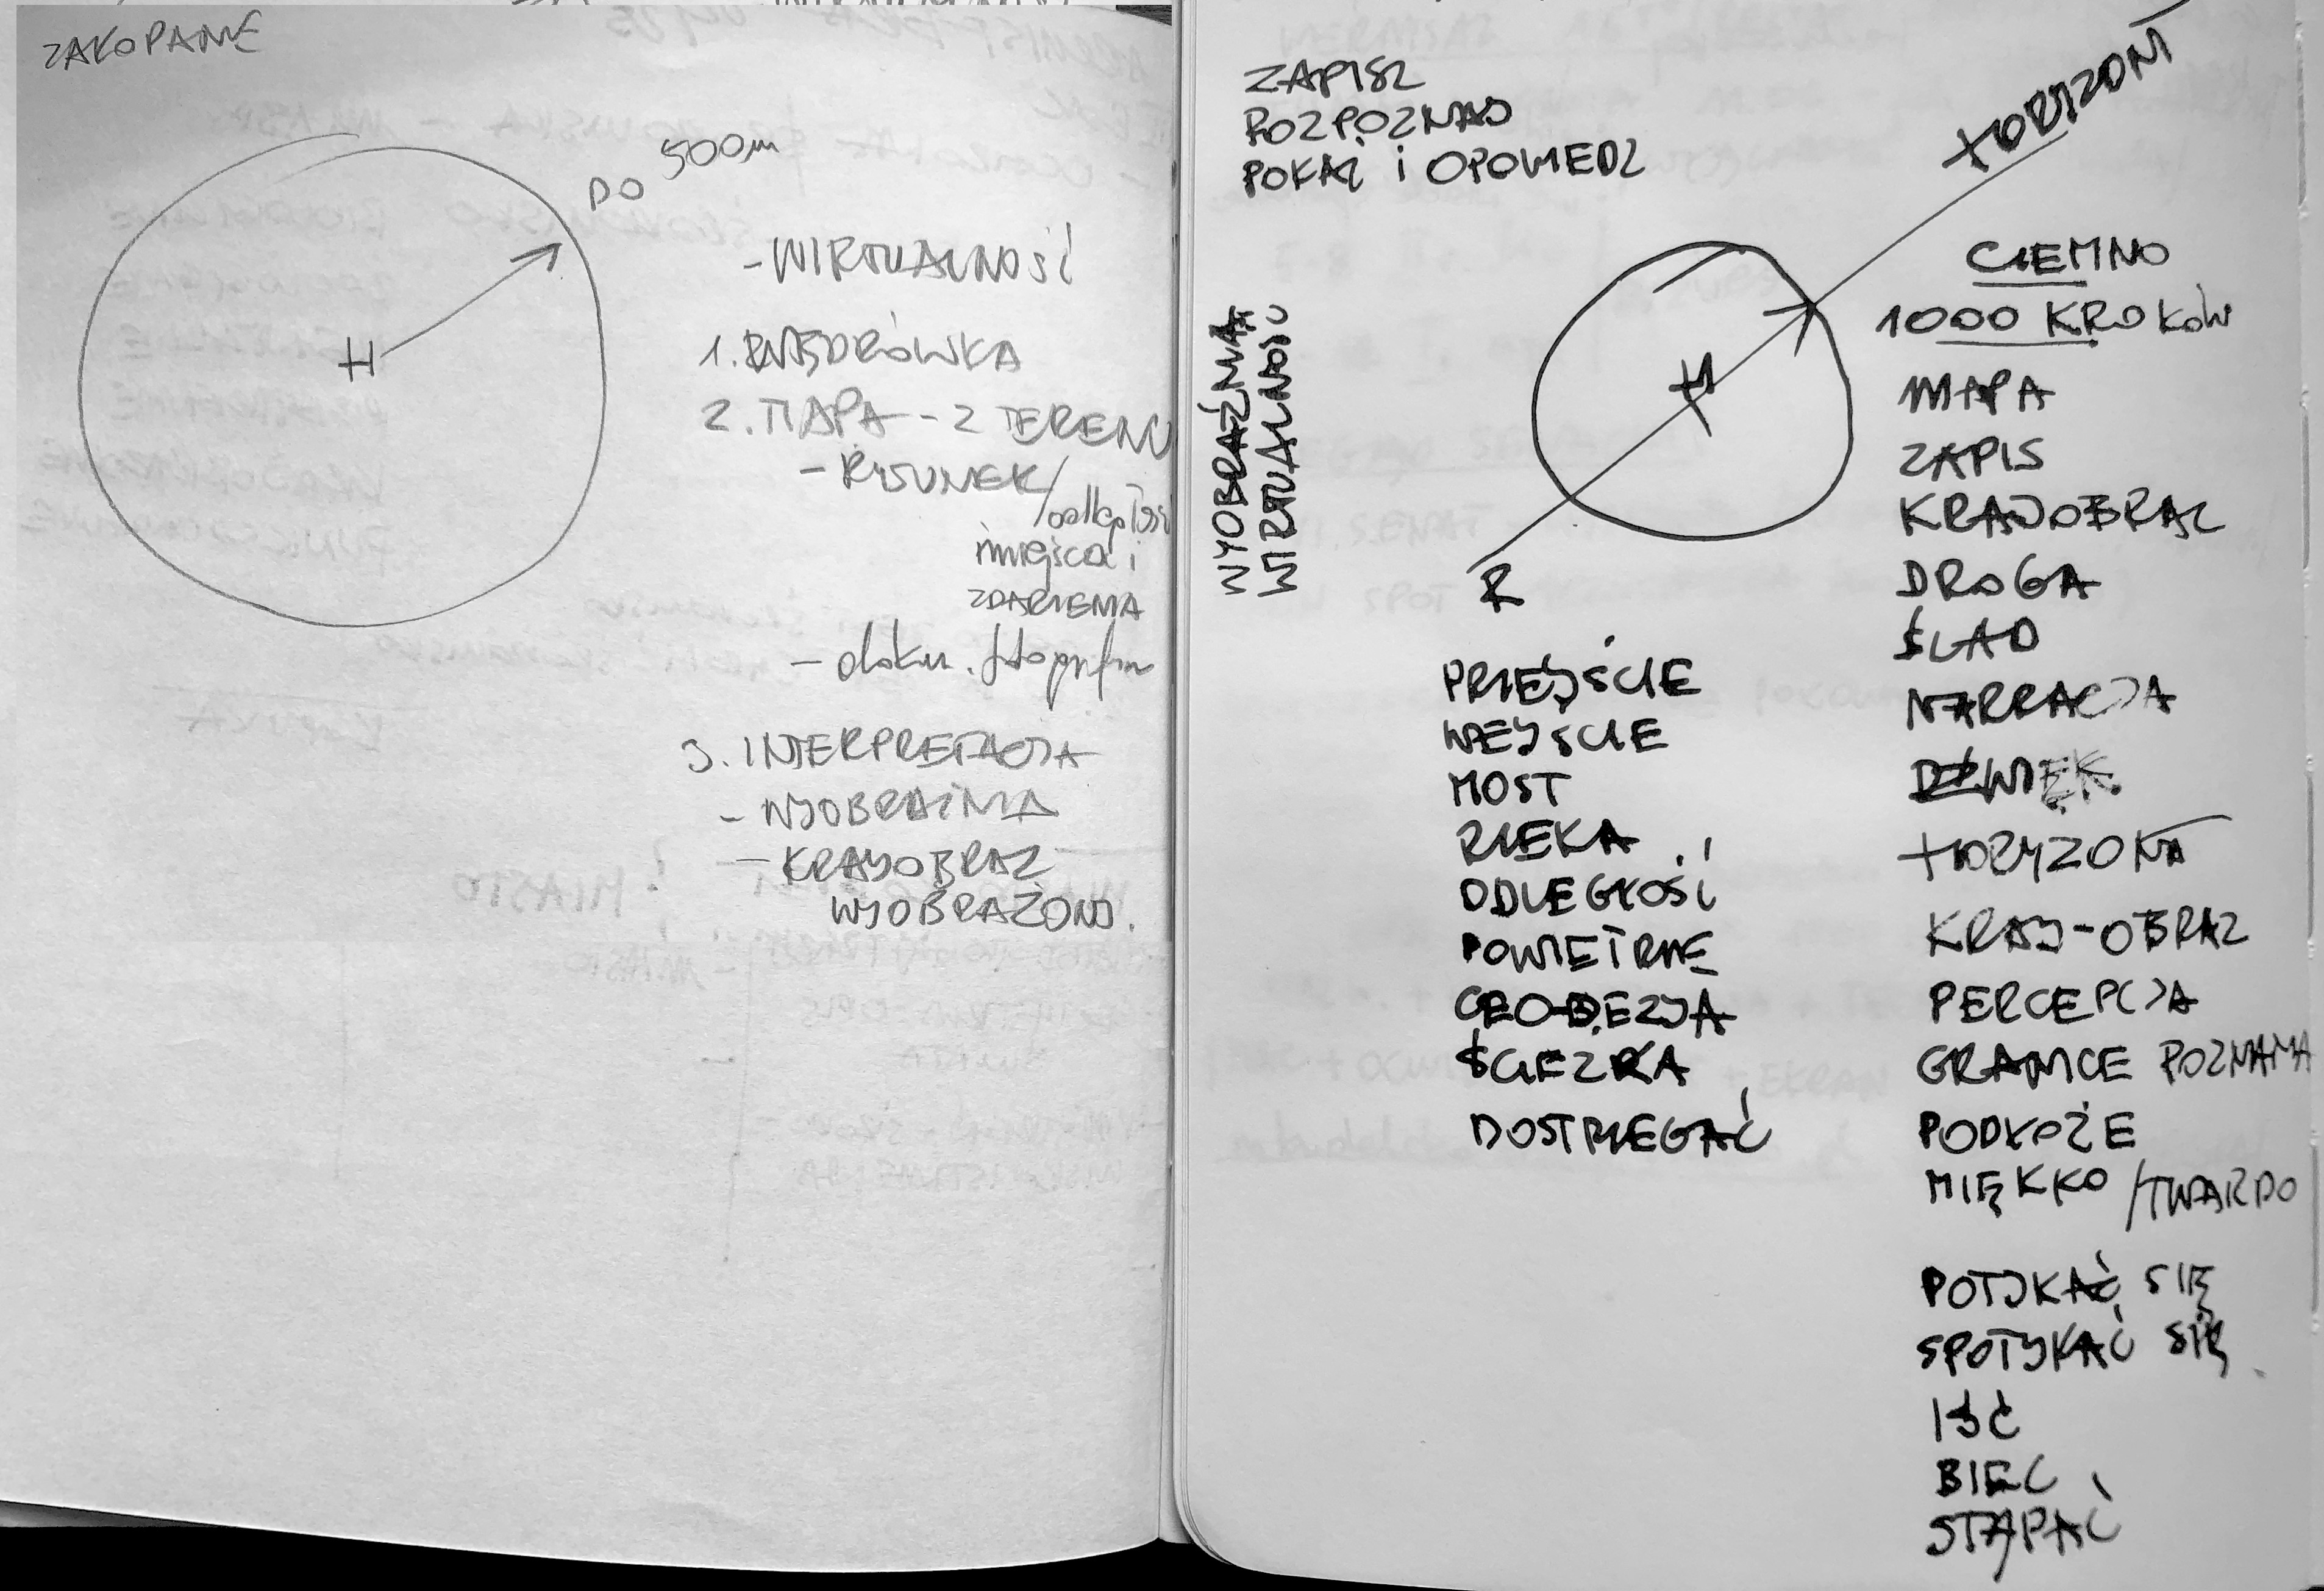 ZAKOPANE
DO 500m
H
- WIRTUALNOŚĆ
1. WĘDRÓWKA
2. MAPA - Z TERENU
- RYSUNEK /
odległość
miejsca i
ZDARZENIA
- dokum. fotografia
3. INTERPRETACJA
- WYOBRAŹNIA
- KRAJOBRAZ
WYOBRAŻONY.
ZAPISZ
ROZPOZNAJ
POKAŻ i OPOWIEDZ
HORYZONT
WYOBRAŹNIA
WIRTUALNOŚĆ
H
R
PRZEJŚCIE
WEJŚCIE
MOST
RZEKA
ODLEGŁOŚĆ
POWIETRZE
GEODEZJA
ŚCIEŻKA
DOSTRZEGAĆ
CIEMNO
1000 KROKÓW
MAPA
ZAPIS
KRAJOBRAZ
DROGA
ŚLAD
NARRACJA
DŹWIĘK
HORYZONT
KRAJ-OBRAZ
PERCEPCJA
GRANICE POZNANIA
PODŁOŻE
MIĘKKO / TWARDO
POTYKAĆ SIĘ
SPOTYKAĆ SIĘ
IŚĆ
BIEC
STĄPAĆ